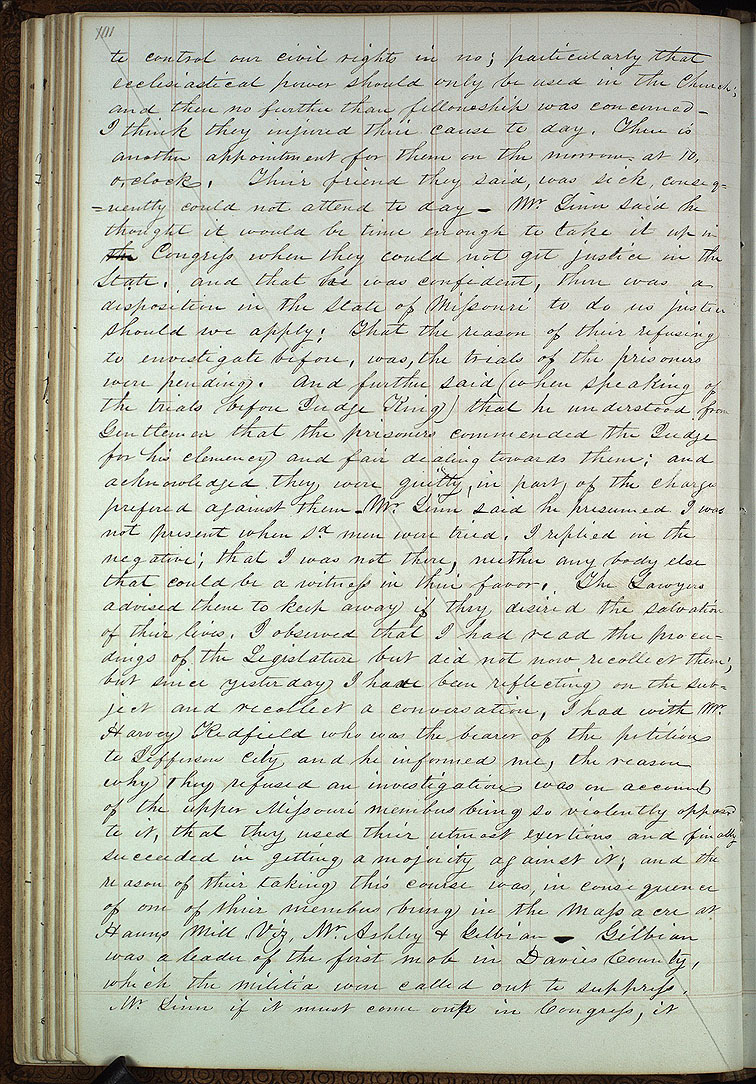 101
to control our civil rights in no; particularly that
ecclesiastical power should only be used in the Church;
and then no further than fellowship was concerned—
I think they injured their cause to day. There is
another appointment for them on the morrow at 10,
o,clock. Their friend they said, was sick, conseq-
=uently could not attend to day — Mr. Linn said he
thought it would be time enough to take it up in
the Congress when they could not get justice in the
State, and that he was confident, there was a
disposition in the State of Missouri to do us justice
should we apply; That the reason of their refusing
to envestigate before, was, the trials of the prisoners
were pending. And further said (when speaking of
the trials before Judge King) that he understood from
Gentlemen that the prisoners commended the Judge
for his clemency and fair dealing towards them; and
acknowledged they were guilty, in part, of the charges
prefered against them — Mr. Linn said he presumed I was
not present when sd men were tried. I replied in the
negative; that I was not there, neither any body else
that could be a witness in their favor. The Lawyers
advised them to keep away if they desired the salvation
of their lives. I observed that I had read the procee-
dings of the Legislature but did not now recollect them;
but since yesterday I have been reflecting on the sub=
ject and recollect a conversation, I had with Mr.
Harvey Redfield who was the bearer of the petition
to Jefferson City and he informed me, the reason
why they refused an investigation was on account
of the upper Missouri members being so violently opposed
to it, that they used their utmost exertions and finally
succeeded in getting a majority against it; and the
reason of their taking this course was, in consequence
of one of their members being in the Massacre at
Hauns Mill Viz, Mr. Ashley & Gilbian — Gilbian
was a leader of the first mob in Davies County,
which the militia were called out to suppress.
Mr. Linn if it must come out in Congress, it